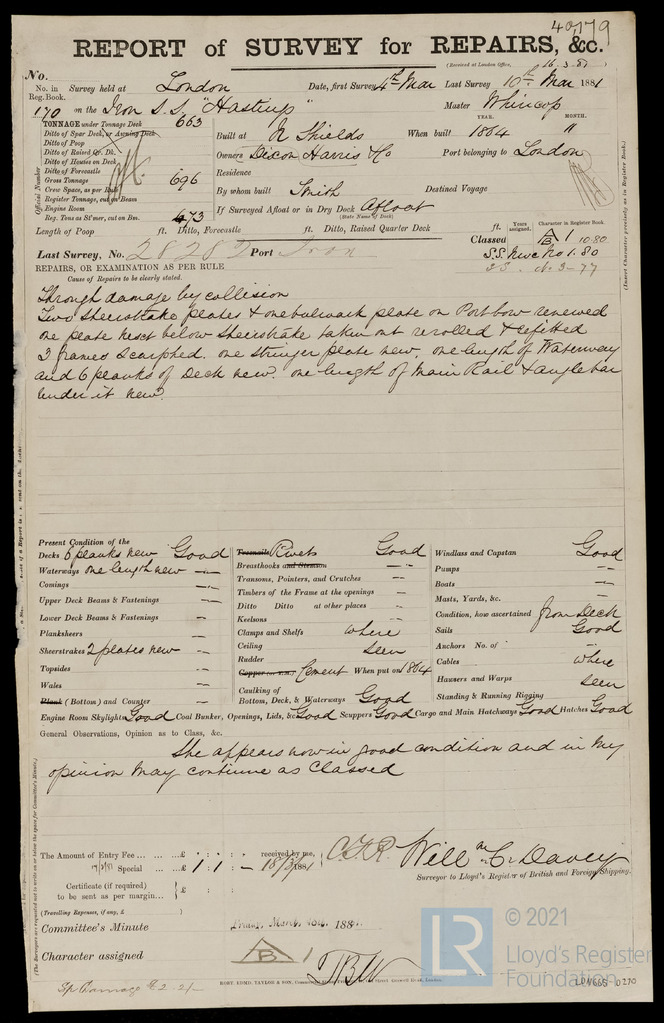 40779
REPORT of SURVEY for REPAIRS, &c.
(Received at London Office, 16.3.81)
No.
No. in Reg. Book. Survey held at London Date, first Survey 4th Mar Last Survey 10th Mar 1881
170 on the Iron S.S. "Hastings" Master Whincop
TONNAGE under Tonnage Deck 663
Ditto of Spar Deck, or Awning Deck
Ditto of Poop
Ditto of Raised Qr. Dk.
Ditto of Houses on Deck
Ditto of Forecastle
Gross Tonnage 696
Crew Space, as per Rule
Register Tonnage, cut on Beam
Engine Room
Reg. Tons as St'mer, cut on Bm. 473
Official Number
Built at N Shields When built YEAR. 1864 MONTH. "
Owners Dixon Harris & Co Port belonging to London
Residence
By whom built Smith Destined Voyage
If Surveyed Afloat or in Dry Dock Afloat
(State Name of Dock)
Length of Poop ft. Ditto, Forecastle ft. Ditto, Raised Quarter Deck ft.
Years assigned. Character in Register Book.
Classed A 1 10.80
S.S. Nwc No 1.80
Last Survey, No. 28282 Port Iron
(Insert Character precisely as in Register Book.)
REPAIRS, OR EXAMINATION AS PER RULE
Cause of Repairs to be clearly stated.
Through damage by collision
Two Sheerstrake plates & one bulwark plate on Port bow renewed
one plate next below Sheerstrake taken out rerolled & refitted
2 frames Scarphed. one Stringer plate new, one length of Waterway
and 6 planks of Deck new. one length of Main Rail & angle bar
under it new.
Present Condition of the
Decks 6 planks new Good
Waterways one length new —
Comings —
Upper Deck Beams & Fastenings —
Lower Deck Beams & Fastenings —
Planksheers —
Sheerstrakes 2 plates new —
Topsides —
Wales —
Plank (Bottom) and Counter —
Treenails Rivets Good
Breasthooks and Stemson —
Transoms, Pointers, and Crutches —
Timbers of the Frame at the openings —
Ditto Ditto at other places —
Keelsons —
Clamps and Shelfs where
Ceiling seen
Rudder
Copper (or Y.M.) Cement When put on 1864
Caulking of Bottom, Deck, & Waterways Good
Windlass and Capstan Good
Pumps —
Boats —
Masts, Yards, &c. —
Condition, how ascertained from Deck
Sails Good
Anchors No. of —
Cables where
Hawsers and Warps seen
Standing & Running Rigging —
Engine Room Skylights Good Coal Bunker, Openings, Lids, &c. Good Scuppers Good Cargo and Main Hatchways Good Hatches Good
General Observations, Opinion as to Class, &c.
She appears now in good condition and in my
opinion may continue as Classed
(The Surveyors are requested not to write on or below the space for Committee's Minute.)
The Amount of Entry Fee ... ... £ : : received by me,
Special ... £ 1 : 1 : — 18/3/1881
Certificate (if required) to be sent as per margin... £ : :
(Travelling Expenses, if any, £ )
Willm C. Davey
Surveyor to Lloyd's Register of British and Foreign Shipping.
Committee's Minute Friday, March 18th, 1881.
Character assigned A 1
Sp Damage £2.2/-
LR © 2021
Lloyd's Register
Foundation
LDN665-0270